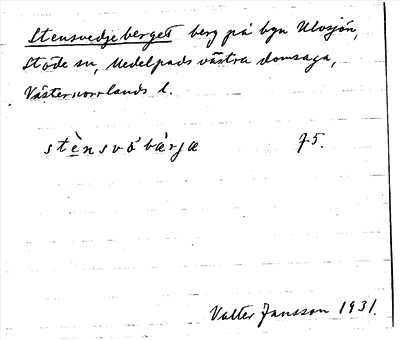 Stensvedjeberget berg på byn Ulvsjön,
Stöde sn, Medelpads västra domsaga,
Västernorrlands l.
stènsvə̀bàrjæ 75.
Valter Jansson 1931.